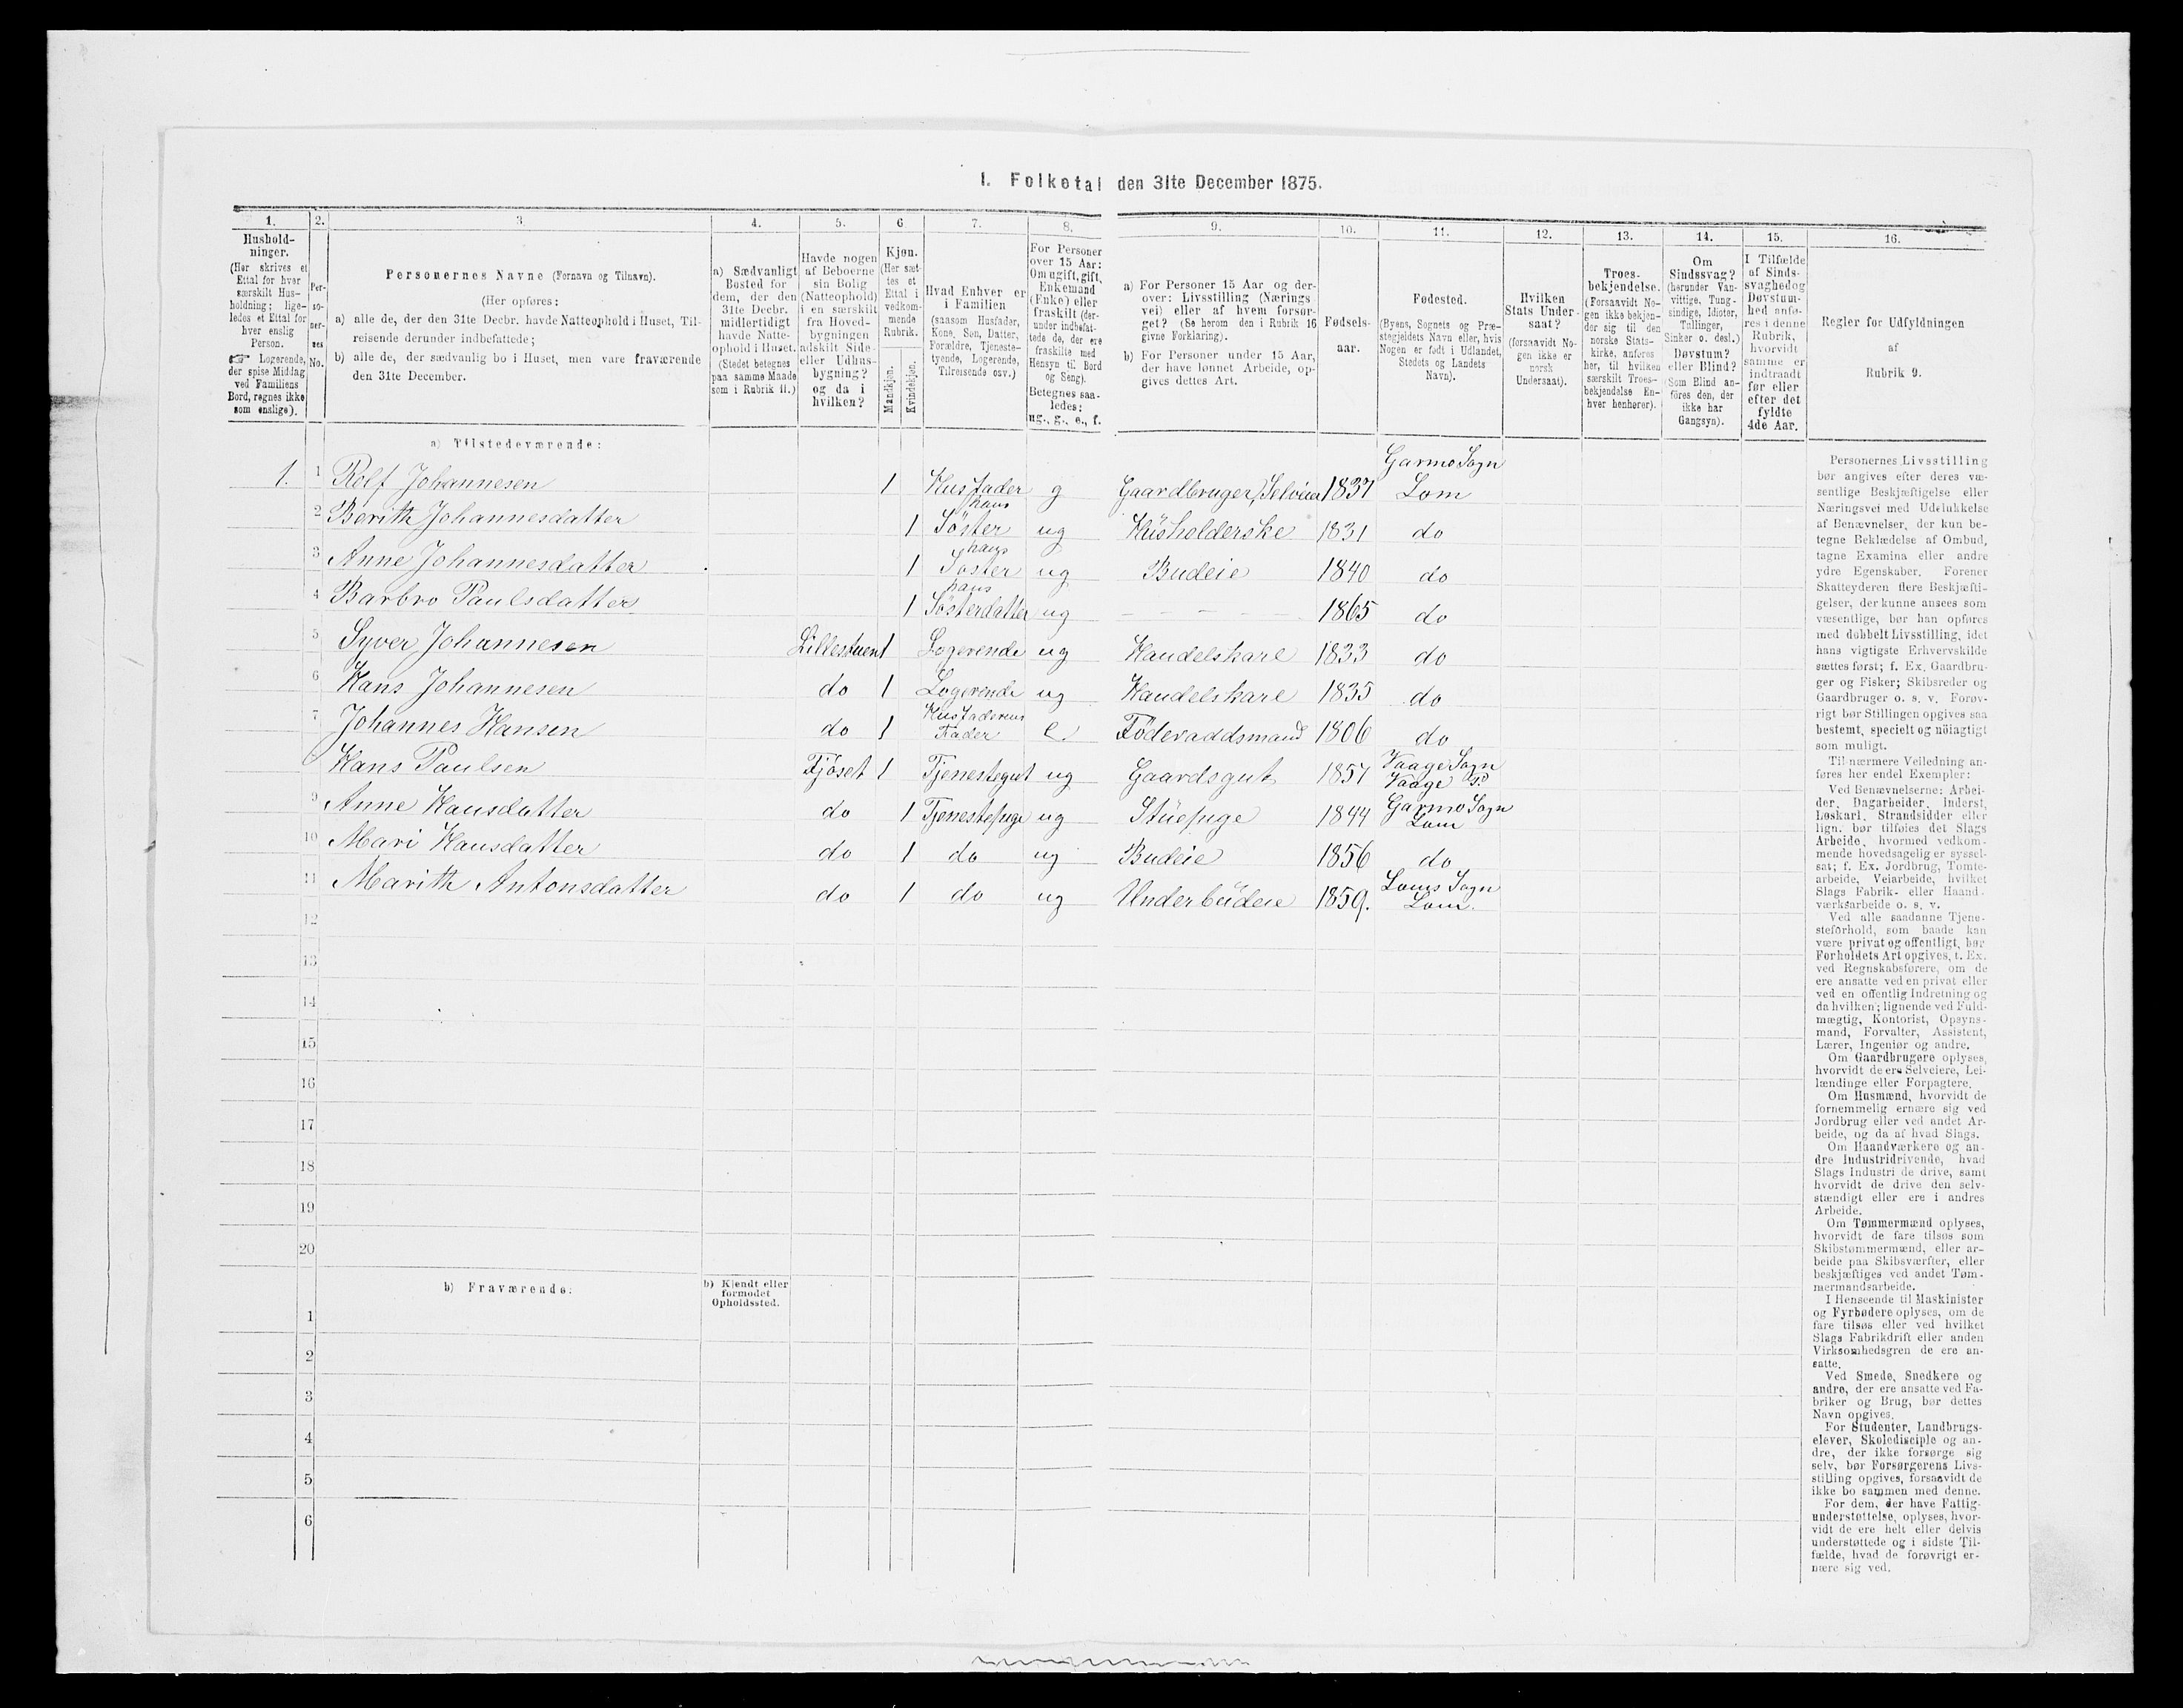 I. Folketal den 31te December 1875.
1. 2. 3. 4. 5. 6 7. 8. 9. 10. 11. 12. 13. 14. 15. 16.
Hushold-
ninger.
(Her skrives et
Ettal for hver
særskilt Hus-
holdning; lige-
ledes et Ettal for
hver enslig
Person.
☞ Logerende,
der spise Middag
ved Familiens
Bord, regnes ikke
som enslige).
Per-
so-
ner-
nes
No.
Personernes Navne (Fornavn og Tilnavn).
(Her opføres:
a) alle de, der den 31te Decbr. havde Natteophold i Huset, Til-
reisende derunder indbefattede;
b) alle de, der sædvanlig bo i Huset, men vare fraværende
den 31te December.
a) Sædvanligt
Bosted for
dem, der den
31te Decbr.
midlertidigt
havde Natte-
ophold i Huset.
(Stedet betegnes
paa samme Maade
som i Rubrik 11.)
Havde nogen
af Beboerne
sin Bolig
(Natteophold)
i en særskilt
fra Hoved-
bygningen
adskilt Side-
eller Udhus-
bygning?
og da i
hvilken?
Kjøn.
(Her sæt-
tes et
Ettal i
vedkom-
mende
Rubrik.
Mandkjøn.
Kvindekjøn.
Hvad Enhver er
i Familien
(saasom Husfader,
Kone, Søn, Datter,
Forældre, Tjeneste-
tyende, Logerende,
Tilreisende osv.)
For Personer
over 15 Aar:
Om ugift, gift,
Enkemand
(Enke) eller
fraskilt (der-
under indbefat-
tede de, der ere
fraskilte med
Hensyn til Bord
og Seng).
Betegnes saa-
ledes:
ug., g., e., f.
a) For Personer 15 Aar og der-
over: Livsstilling (Nærings-
vei) eller af hvem forsør-
get? (Se herom den i Rubrik 16
givne Forklaring).
b) For Personer under 15 Aar,
der have lønnet Arbeide, op-
gives dettes Art.
Fødsels-
aar.
Fødested.
(Byens, Sognets og Præ-
stegjeldets Navn eller, hvis
Nogen er født i Udlandet,
Stedets og Landets
Navn).
Hvilken
Stats Under-
saat?
(forsaavidt No-
gen ikke er
norsk
Undersaat).
Troes-
bekjendelse.
(Forsaavidt No-
gen ikke bekjen-
der sig til den
norske Stats-
kirke, anføres
her, til hvilken
særskilt Troes-
bekjendelse En-
hver henhører).
Om
Sindssvag?
(herunder Van-
vittige, Tung-
sindige, Idioter,
Tullinger,
Sinker o. desl.)
Døvstum?
eller Blind?
(Som Blind an-
føres den, der
ikke har
Gangsyn).
I Tilfælde
af Sinds-
svaghed og
Døvstum-
hed anfø-
res i denne
Rubrik,
hvorvidt
samme er
indtraadt
før eller
efter det
fyldte
4de Aar.
Regler for Udfyldningen
af
Rubrik 9.
a) Tilstedeværende:
Garmo Sogn
1. 1 Rolf Johannesen 1 Husfader g Gaardbruger, Selveier 1837 Lom
hans
2 Berith Johannesdatter 1 Söster ug Husholderske 1831 do
hans
3 Anne Johannesdatter 1 Söster ug Budeie 1840 do
hans
4 Barbro Paulsdatter 1 Sösterdatter ug - - - - - 1865 do
5 Syver Johannesen Lillestuen 1 Logerende ug Handelskarl 1833 do
6 Hans Johannesen do 1 Logerende ug Handelskarl 1835 do
Husfaderens
7 Johannes Hansen do 1 Fader e. Föderaadsmand 1806 do
Vaage Sogn
Hans Paulsen Fjöset 1 Tjenestegut ug Gaardsgut 1857 Vaage P.
Garmo Sogn
9 Anne Hansdatter do 1 Tjenestepige ug Stuepige 1844 Lom
10 Mari Hansdatter do 1 do ug Budeie 1856 do
Loms Sogn
11 Marith Antonsdatter do 1 do ug Underbudeie 1859. Lom.
12
13
14
15
16
17
18
19
20
b) Fraværende:
b) Kjendt eller
formodet
Opholdssted.
1
2
3
4
5
6
Personernes Livsstilling
bør angives efter deres væ-
sentlige Beskjæftigelse eller
Næringsvei med Udelukkelse
af Benævnelser, der kun be-
tegne Beklædelse af Ombud,
tagne Examina eller andre
ydre Egenskaber. Forener
Skatteyderen flere Beskjæfti-
gelser, der kunne ansees som
væsentlige, bør han opføres
med dobbelt Livsstilling, idet
hans vigtigste Erhvervskilde
sættes først; f. Ex. Gaardbru-
ger og Fisker; Skibsreder og
Gaardbruger o. s. v. Forøv-
rigt bør Stillingen opgives saa
bestemt, specielt og nöiagtigt
som muligt.
Til nærmere Veiledning an-
føres her endel Exempler:
Ved Benævnelserne: Arbei-
der, Dagarbeider, Inderst,
Løskarl, Strandsidder eller
lign. bør tilføies det Slags
Arbeide, hvormed vedkom-
mende hovedsagelig er syssel-
sat; f. Ex. Jordbrug, Tomte-
arbeide, Veiarbeide, hvilket
Slags Fabrik- eller Haand-
værksarbeide o. s. v.
Ved alle saadanne Tjene-
steforhold, som baade kan
være privat og offentligt, bør
Forholdets Art opgives, t. Ex.
ved Regnskabsførere, om de
ere ansatte ved en privat eller
ved en offentlig Indretning og
da hvilken; lignende ved Fuld-
mægtig, Kontorist, Opsyns-
mand, Forvalter, Assistent,
Lærer, Ingeniør og andre.
Om Gaardbrugere oplyses,
hvorvidt de ere Selveiere, Lei-
lændinge eller Forpagtere.
Om Husmænd, hvorvidt de
fornemmelig ernære sig ved
Jordbrug eller ved andet Ar-
beide, og da af hvad Slags.
Om Haandværkere og an-
dre Industridrivende, hvad
Slags Industri de drive, samt
hvorvidt de drive den selv-
stændigt eller ere i andres
Arbeide.
Om Tømmermænd oplyses,
hvorvidt de fare tilsøs som
Skibstømmermænd, eller ar-
beide paa Skibsværfter, eller
beskjæftiges ved andet Tøm-
mermandsarbeide.
I Henseende til Maskinister
og Fyrbødere oplyses, om de
fare tilsøs eller ved hvilket
Slags Fabrikdrift eller anden
Virksomhedsgren de ere an-
satte.
Ved Smede, Snedkere og
andre, der ere ansatte ved Fa-
briker og Brug, bør dettes
Navn opgives.
For Studenter, Landbrugs-
elever, Skoledisciple og an-
dre, der ikke forsørge sig
selv, bør Forsørgerens Livs-
stilling opgives, forsaavidt de
ikke bo sammen med denne.
For dem, der have Fattig-
understøttelse, oplyses, hvor-
vidt de ere helt eller delvis
understøttede og i sidste Til-
fælde, hvad de forøvrigt er-
nære sig ved.